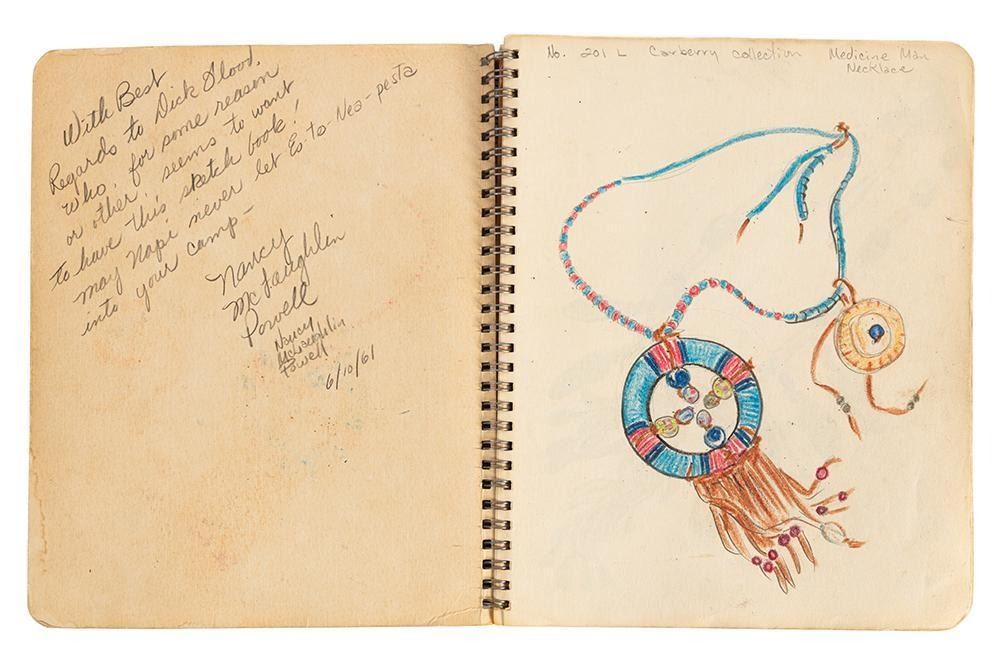 With Best
Regards to Dick Flood,
who, for some reason
or other seems to want
to have this sketch book!
may Napi never let Es-to-Nea-pesta
into your camp-
Nancy
McLaughlin
Powell
Nancy
McLaughlin
Powell
6/10/61
No. 201 L Carberry collection Medicine Man
Necklace